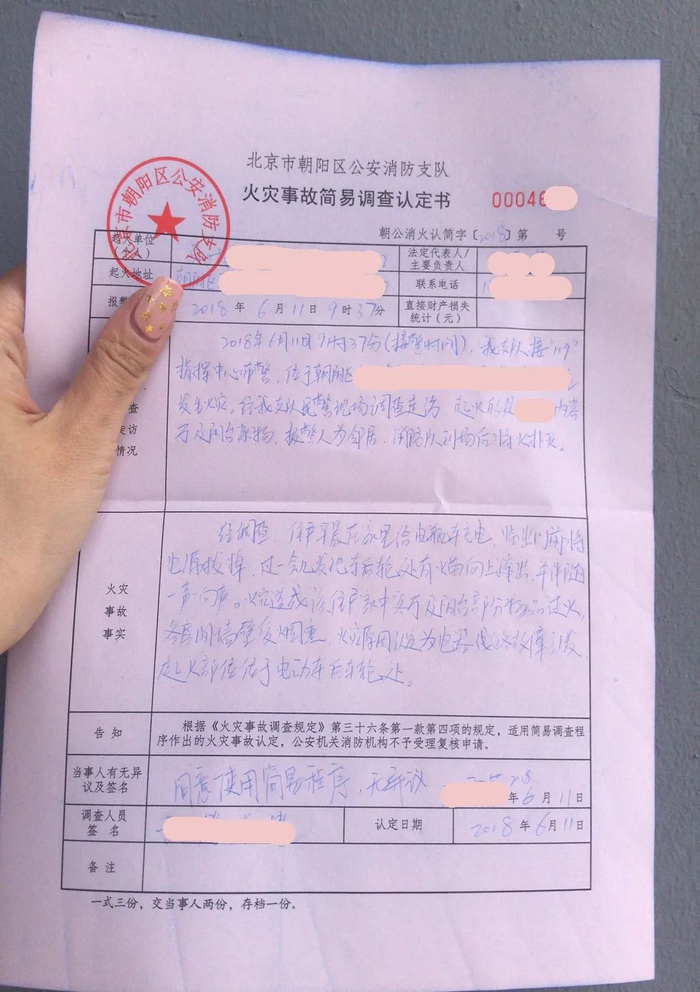 北京市朝阳区公安消防支队
火灾事故简易调查认定书 00046
北京市朝阳区公安消防支队
朝公消火认简字〔2018〕第 号
起火单位 法定代表人/主要负责人
起火地址 朝阳区 联系电话
报警 2018年6月11日9时37分 直接财产损失统计(元)
2018年6月11日9时37分(接警时间),我支队接"119"
指挥中心布警,位于朝阳区
发生火灾。经我支队民警现场调查走访,起火 内客
厅及阳台杂物,报警人为邻居,消防队到场后将火扑灭。
查
走访
情况
经调查,住户早晨在家里给电瓶车充电,临出门前将
电源拔掉,过一会儿发现车后轮处有火苗向上窜出,并伴随
一声响声。火灾造成该住户家中客厅及阳台部分物品过火,
各房间墙壁受烟熏,火灾原因认定为电器线路故障引发,
起火部位位于电动车后车轮处。
火灾
事故
事实
告知 根据《火灾事故调查规定》第三十六条第一款第四项的规定,适用简易调查程
序作出的火灾事故认定,公安机关消防机构不予受理复核申请。
当事人有无异
议及签名 同意使用简易程序,无异议 2018年6月11日
调查人员
签名 认定日期 2018年6月11日
备注
一式三份,交当事人两份,存档一份。